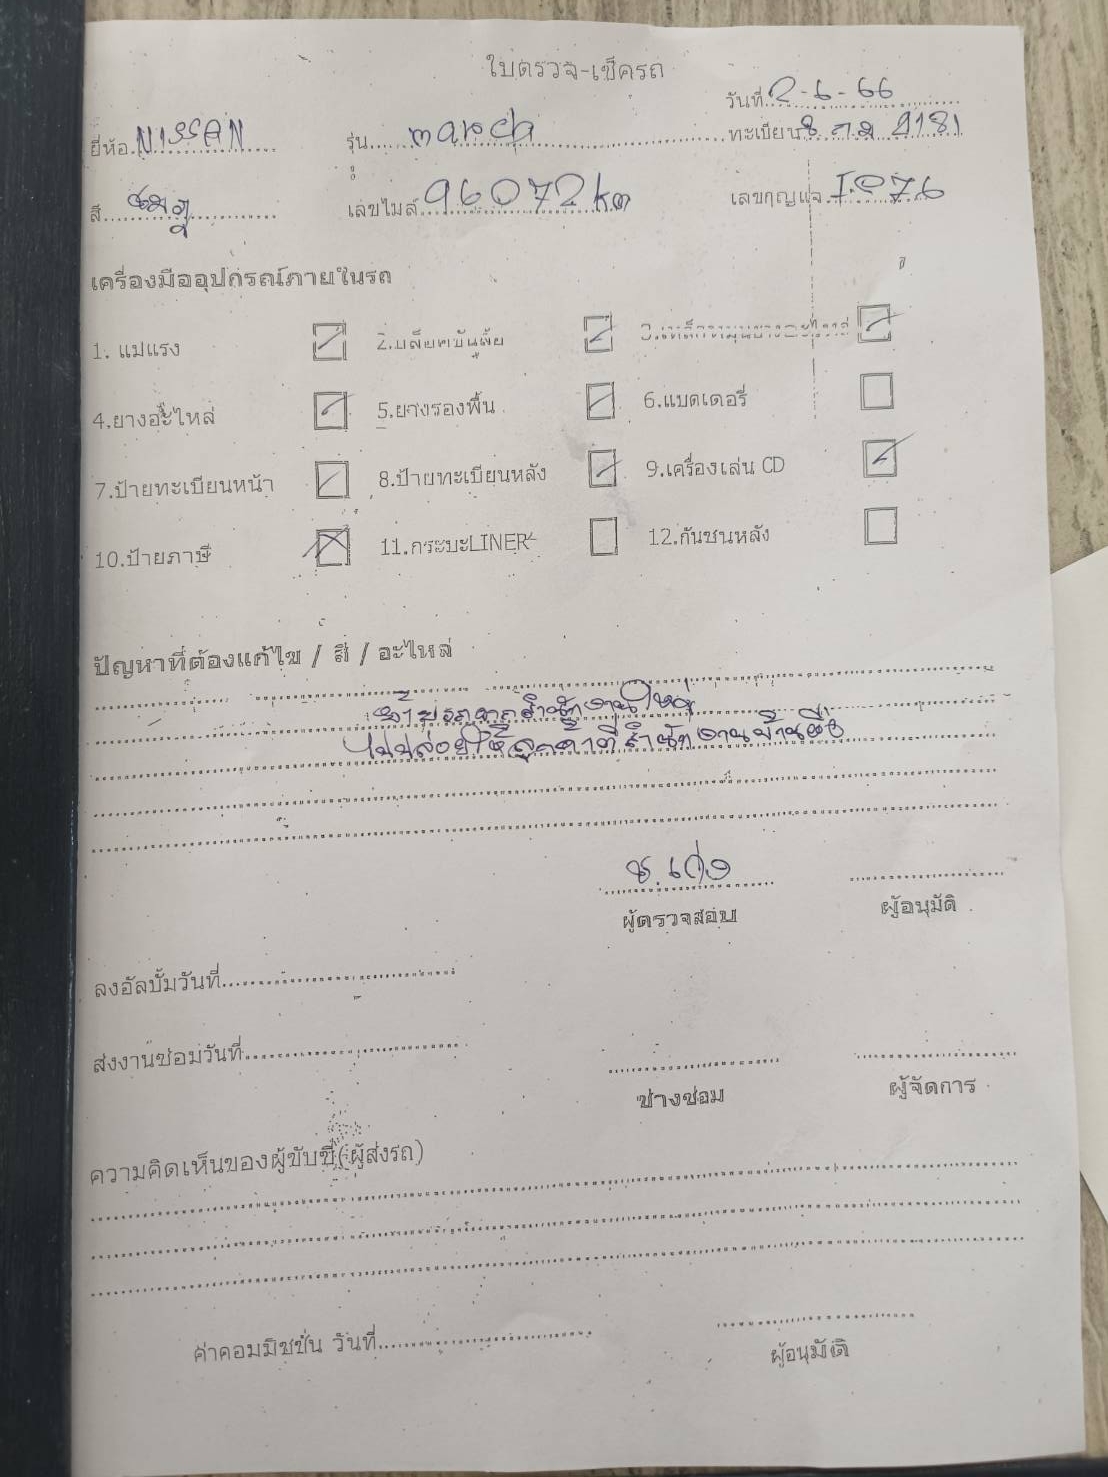 ใบตรวจ-เช็ครถ
วันที่ 2-6-66
ยี่ห้อ NISSAN รุ่น march ทะเบียน 8 กม 9181
สี ชมพู เลขไมล์ 96072 km เลขกุญแจ I-976
เครื่องมืออุปกรณ์ภายในรถ
1. แม่แรง 2.บล็อคขันล้อ
4.ยางอะไหล่ 5.ยางรองพื้น 6.แบตเตอรี่
7.ป้ายทะเบียนหน้า 8.ป้ายทะเบียนหลัง 9.เครื่องเล่น CD
10.ป้ายภาษี 11.กระบะLINER 12.กันชนหลัง
ปัญหาที่ต้องแก้ไข / สี / อะไหล่
ย้ายรถจากสำนักงานใหญ่
ไปปล่อยให้ลูกค้าที่สำนักงานบ้านผือ
ช.เก่ง
ผู้ตรวจสอบ ผู้อนุมัติ
ลงอัลบั้มวันที่
ส่งงานซ่อมวันที่
ช่างซ่อม ผู้จัดการ
ความคิดเห็นของผู้ขับขี่(ผู้ส่งรถ)
ค่าคอมมิชชั่น วันที่
ผู้อนุมัติ